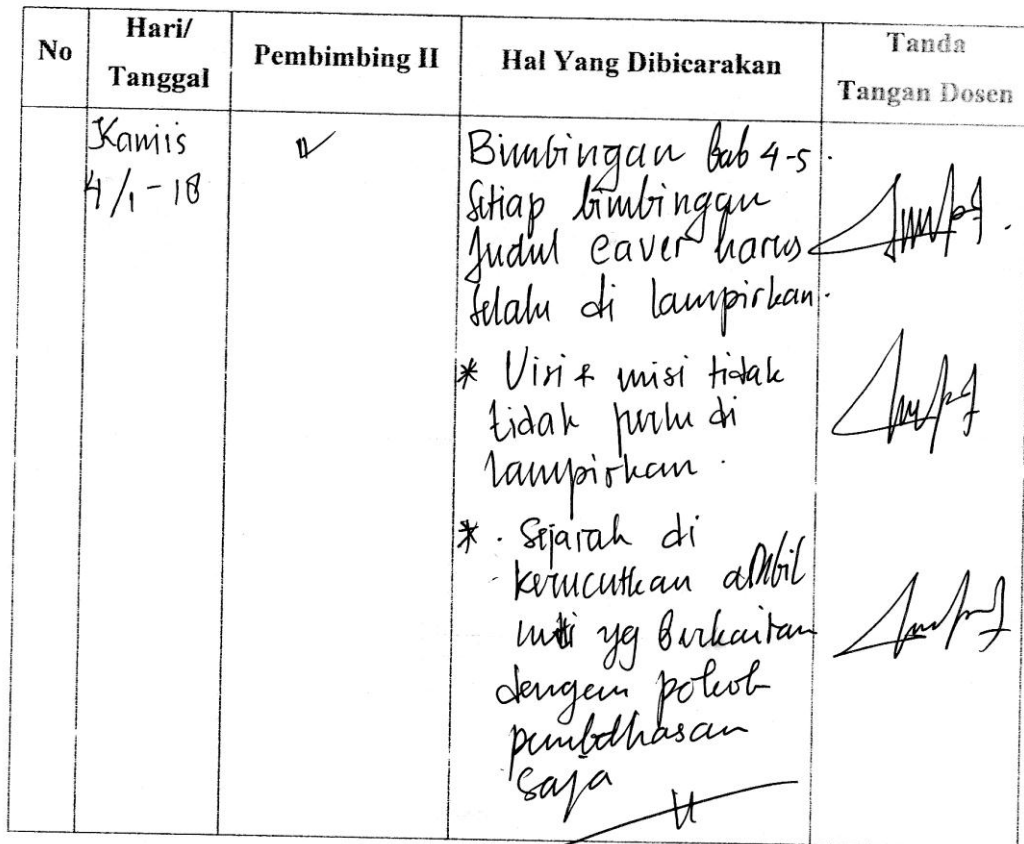 No
Hari/
Tanggal
Pembimbing II
Hal Yang Dibicarakan
Tanda
Tangan Dosen
Kamis
4/1-18
Bimbingan bab 4-5.
Setiap bimbinggan
Judul Caver harus
selalu di lampirkan.
* Visi & misi tidak
tidak perlu di
lampirkan.
* . Sejarah di
kerucutkan ambil
inti yg berkaitan
dengan pokok
pembahasan
saja